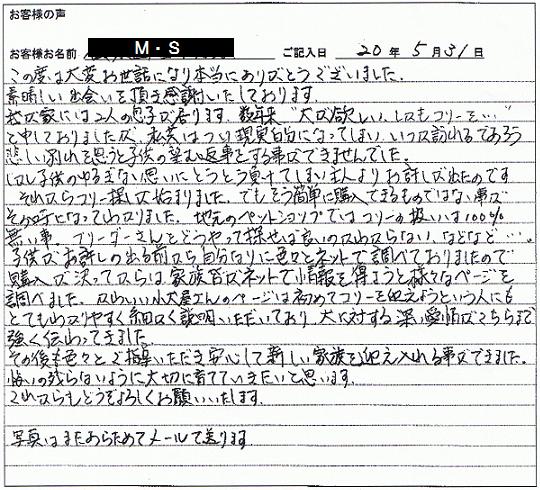 お客様の声
お客様お名前 M・S ご記入日 20年 5月31日
この度は大変お世話になり本当にありがとうございました。
素晴しい出会いを頂き感謝いたしております。
我が家には2人の息子が居ります。数年来 "犬が欲しい、しかもコリーを…"
と申しておりましたが、私共はつい現実的になってしまい、いつか訪れるであろう
悲しい別れを思うと子供の望む返事をする事ができませんでした。
しかし子供のゆるぎない思いにとうとう負けてしまい主人よりお許しが出たのです
それからコリー探しが始まりました。でもそう簡単に購入できるものではない事が
その時になってわかりました。地元のペットショップではコリーの扱いは100%
無い事、ブリーダーさんをどうやって探せば良いのかわからない、などなど…。
子供はお許しの出る前から自分なりに色々とネットで調べておりましたので
購入が決ってからは家族皆がネットで情報を得ようと様々なページを
調べました。かわいい小犬屋さんのページは初めてコリーを迎えようという人にも
とてもわかりやすく細かく説明いただいており 犬に対する深い愛情がこちらまで
強く伝わってきました。
その後も色々とご指導いただき安心して新しい家族を迎え入れる事ができました。
悔いの残らないように大切に育てていきたいと思います。
これからもどうぞよろしくお願いいたします。
写真はまたあらためてメールで送ります